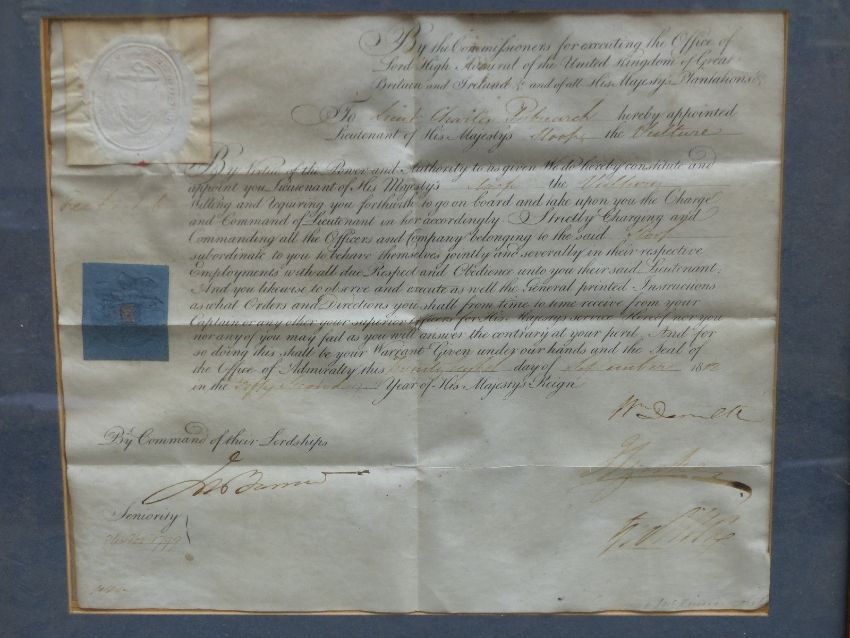 By the Commissioners for executing the Office of
Lord High Admiral of the United Kingdom of Great
Britain and Ireland &c and of all His Majesty's Plantations &c
To Lieut. Charles hereby appointed
Lieutenant of His Majesty's Sloop the Vulture
By Virtue of the Power and Authority to us given We do hereby constitute and
appoint you Lieutenant of His Majesty's Sloop the Vulture
Willing and requiring you forthwith to go on board and take upon you the Charge
and Command of Lieutenant in her accordingly Strictly Charging and
Commanding all the Officers and Company belonging to the said Sloop
subordinate to you to behave themselves jointly and severally in their respective
Employments with all due Respect and Obedience unto you their said Lieutenant;
And you likewise to observe and execute as well the General printed Instructions
as what Orders and Directions you shall from time to time receive from your
Captain or any other your superior Officers for His Majesty's service Hereof nor you
nor any of you may fail as you will answer the contrary at your peril And for
so doing this shall be your Warrant Given under our hands and the Seal of
the Office of Admiralty this Twenty eighth day of September 1812
in the Fifty Second Year of His Majesty's Reign
Wm Domett
By Command of their Lordships
Jn Barrow
Seniority
1799